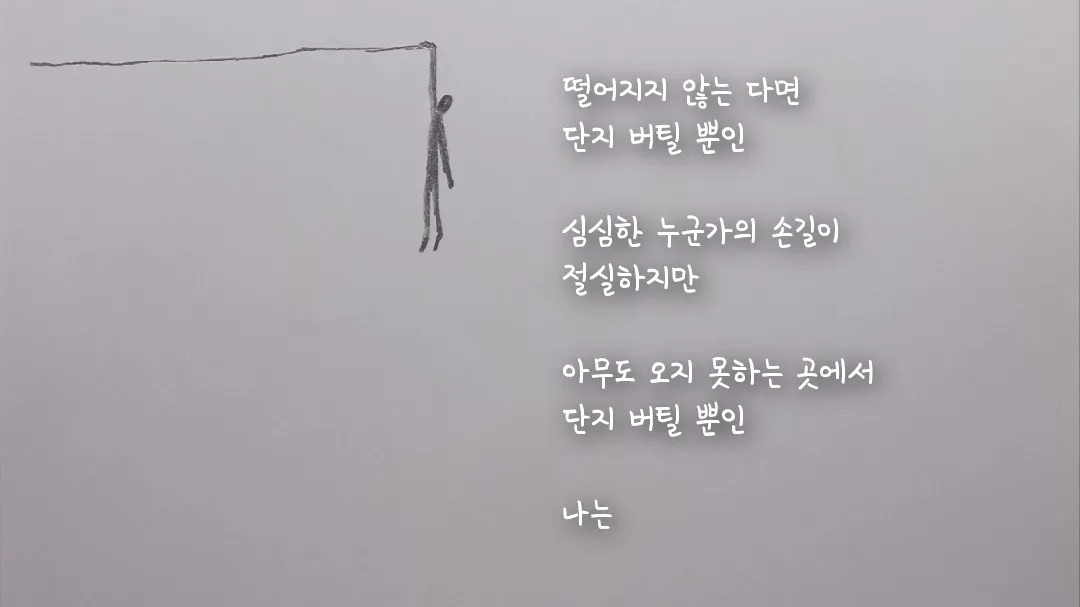 떨어지지 않는 다면
단지 버틸 뿐인
심심한 누군가의 손길이
절실하지만
아무도 오지 못하는 곳에서
단지 버틸 뿐인
나는